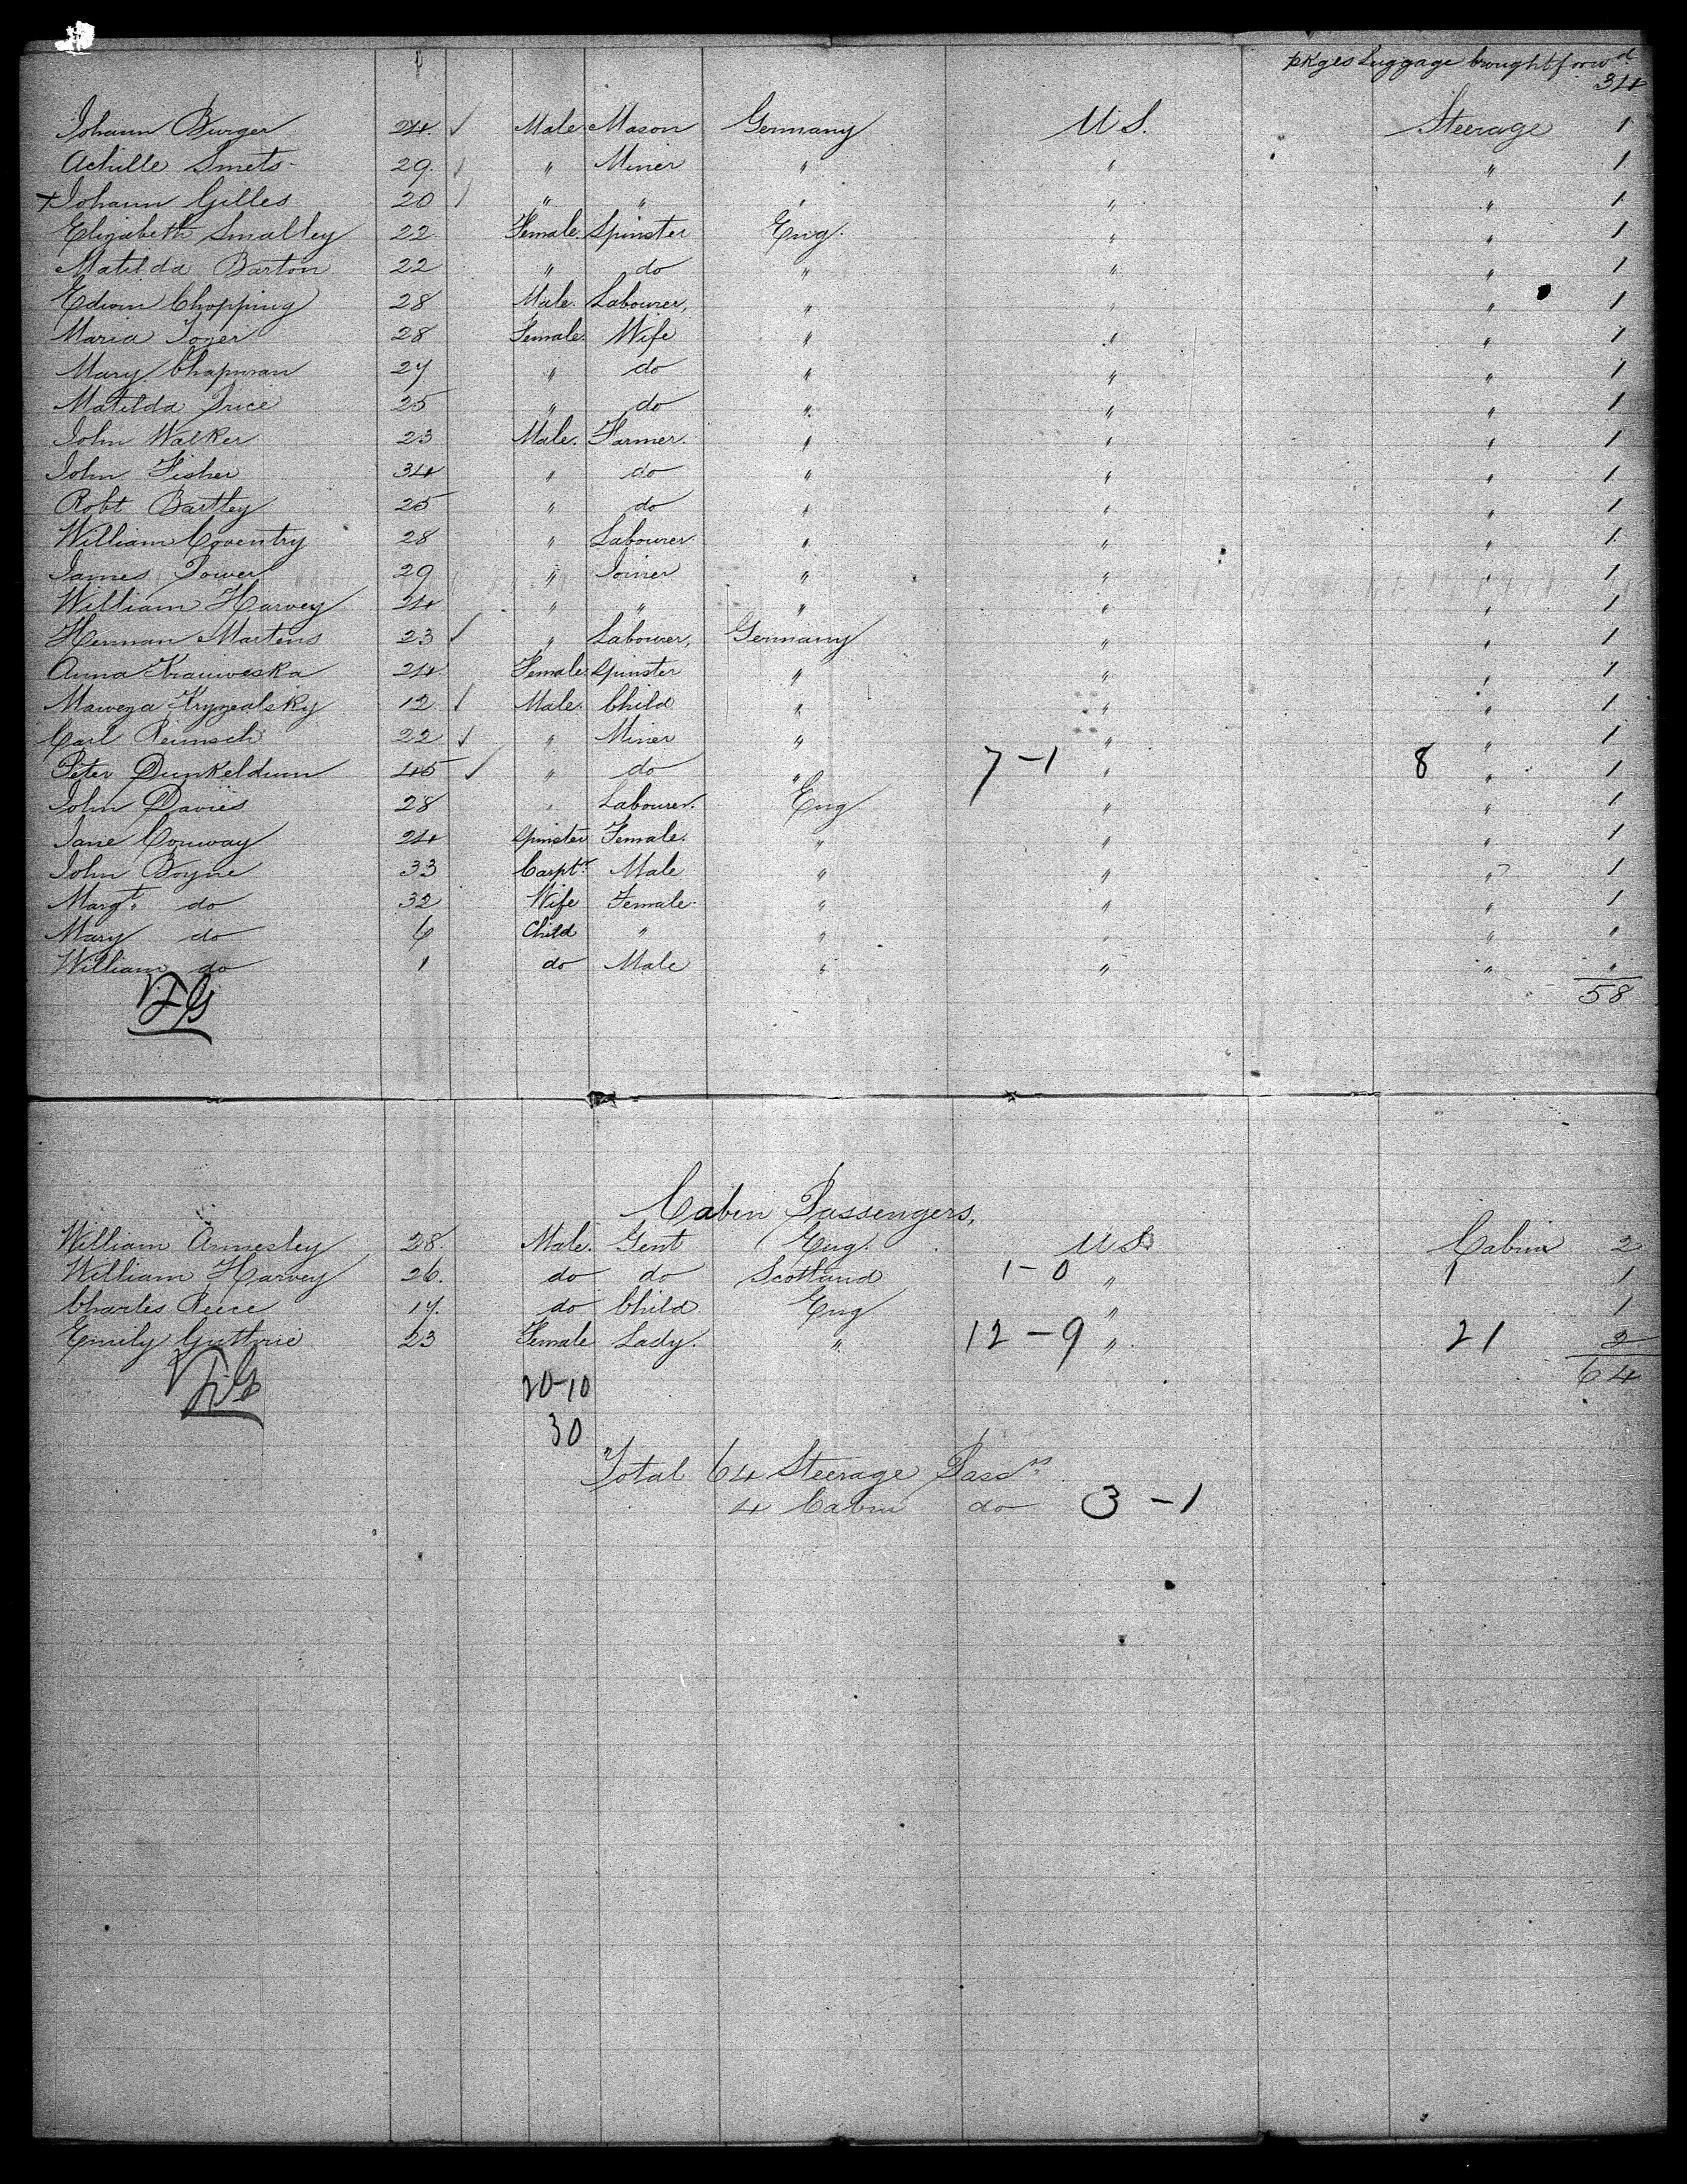 pkges Luggage brought forwd
34
Johann Burger 24 ✓ Male Mason Germany U S. Steerage 1
Achille Smets 29. ✓ " Miner " " " 1
+ Johann Gilles 20 ✓ " " " " " 1
Elizabeth Smalley 22 Female Spinster Eng. " " 1
Matilda Barton 22 " do " " " 1
Edwin Chopping 28 Male Labourer, " " " 1
Maria 28 Female Wife " " " 1
Mary Chapman 27 " do " " " 1
Matilda Price 25 " do " " " 1
John Walker 23 Male. Farmer. " " " 1
John Fisher 34 " do " " " 1
Robt Bartley 25 " do " " " 1
William Coventry 28 " Labourer " " " 1
James Power 29 " Joiner " " " 1
William Harvey 24 " " " " " 1
Herman Martens 23 ✓ " Labourer, Germany " " 1
Anna 24 Female Spinster " " " 1
12 ✓ Male Child " " " 1
Carl Reimsch 22 ✓ " Miner " " " 1
Peter Dunkeldum 45 ✓ " do " 7-1 " 8 " 1
John Davies 28 " Labourer. Eng " " 1
Jane Conway 24 Spinster Female. " " " 1
John Boyne 33 Carptr Male " " " 1
Margt. do 32 Wife Female " " " 1
Mary do 6 Child " " " " "
William do 1 do Male " " " "
58
Cabin Passengers,
William Annesley 28. Male. Gent Eng. U S Cabin 2
William Harvey 26. do do Scotland 1-0 " 1 1
Charles Reece 17. do Child Eng " 1
Emily Guthrie 23 Female Lady. " 12-9 " 21 2
64
20-10
30
Total 64 Steerage Passrs
4 Cabin do 3-1